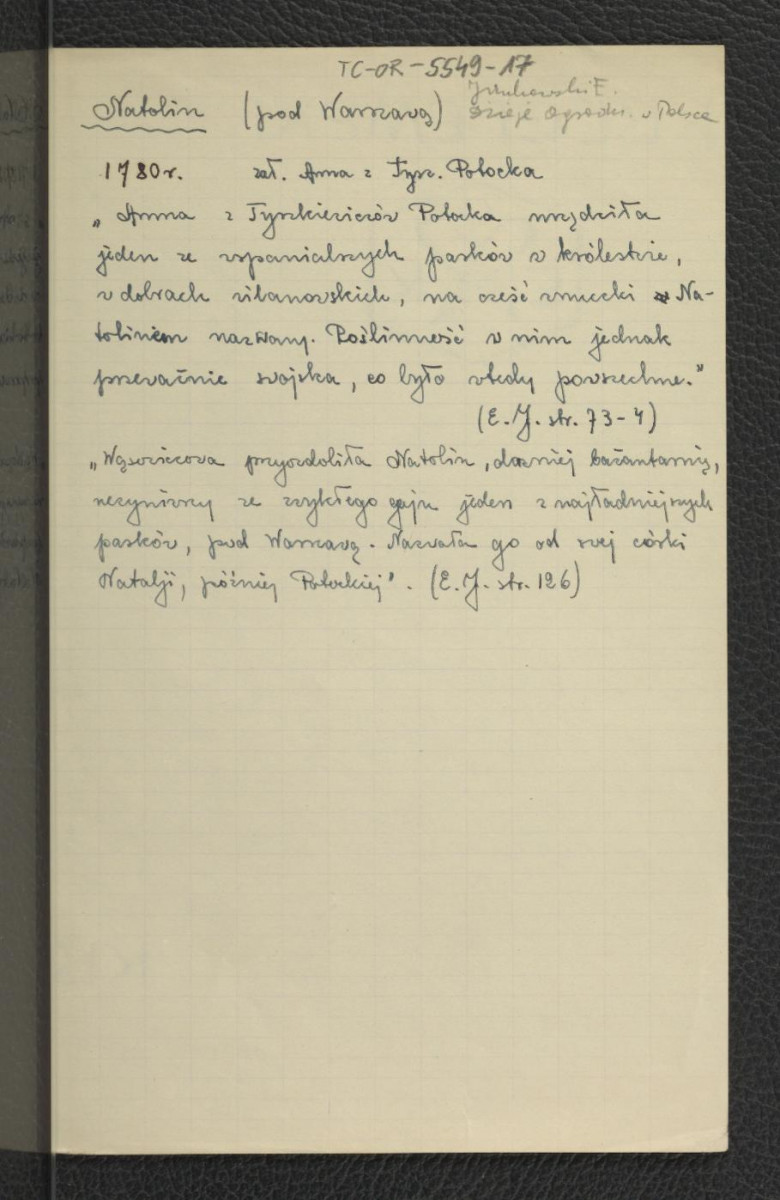 TC-OR-5549-17
Jankowski E.
Dzieje Ogrodn. w Polsce
Natolin (pod Warszawą)
1780r. zał. Anna z Tysz. Potocka
„Anna z Tyszkiewiczów Potocka urządziła
jeden ze wspanialszych parków w królestwie,
w dobrach wilanowskich, na cześć wnuczki Na-
toliniem nazwany. Roślinność w nim jednak
przeważnie swojska, co było wtedy powszechne."
(E.J. str. 73-4)
„Wąsowiczowa przyozdobiła Natolin, dawniej bażantarnię,
uczyniwszy ze zwykłego gaju jeden z najładniejszych
parków, pod Warszawą. Nazwała go od swej córki
Natalji, później Potockiej". (E.J. str. 126)